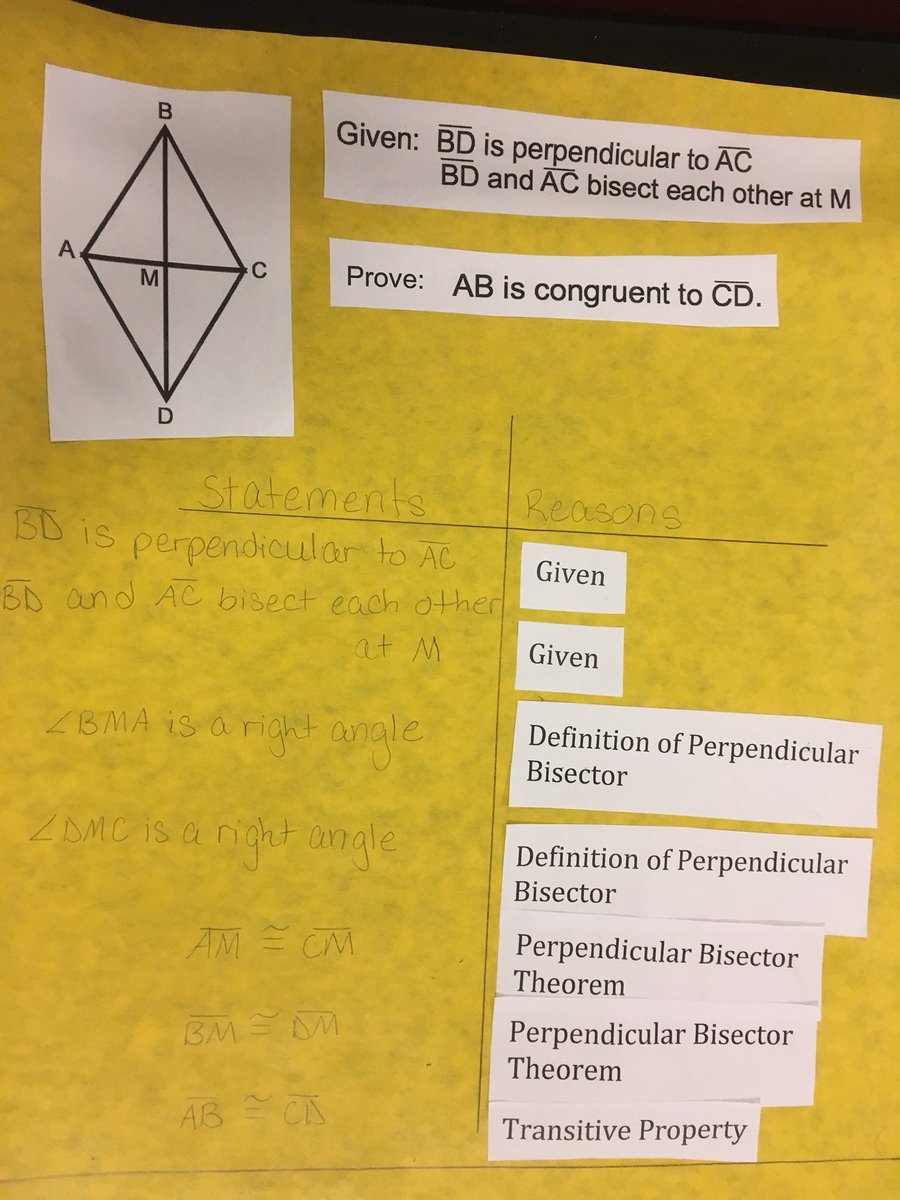 B
A
M
C
D
Given: B̅D̅ is perpendicular to A̅C̅
B̅D̅ and A̅C̅ bisect each other at M
Prove: AB is congruent to C̅D̅.
Statements
Reasons
B̅D̅ is perpendicular to A̅C̅
Given
B̅D̅ and A̅C̅ bisect each other
at M
Given
∠BMA is a right angle
Definition of Perpendicular
Bisector
∠DMC is a right angle
Definition of Perpendicular
Bisector
A̅M̅ ≅ C̅M̅
Perpendicular Bisector
Theorem
B̅M̅ ≅ D̅M̅
Perpendicular Bisector
Theorem
A̅B̅ ≅ C̅D̅
Transitive Property